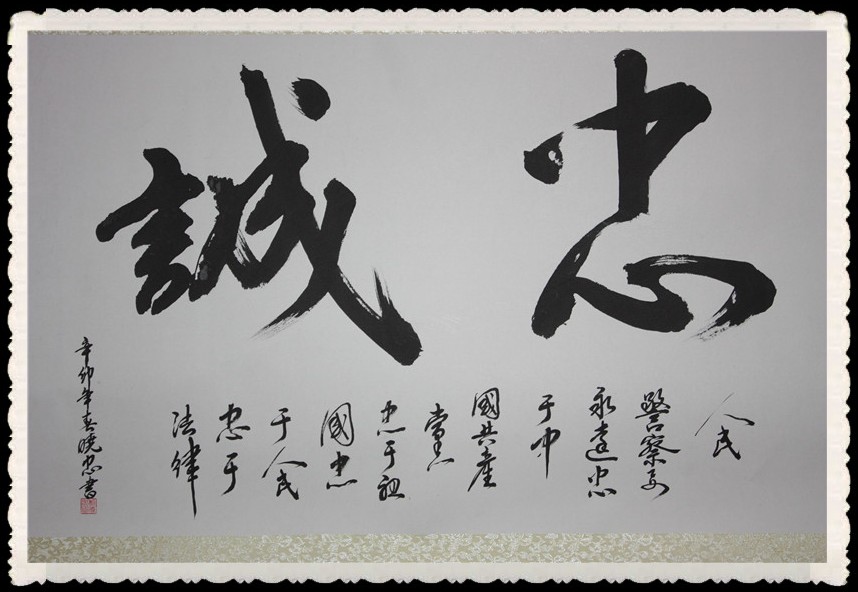 忠誠
人民
警察要
永遠忠
于中
國共產
黨忠
忠于祖
國忠
于人民
忠于
法律
辛卯年春曉忠書